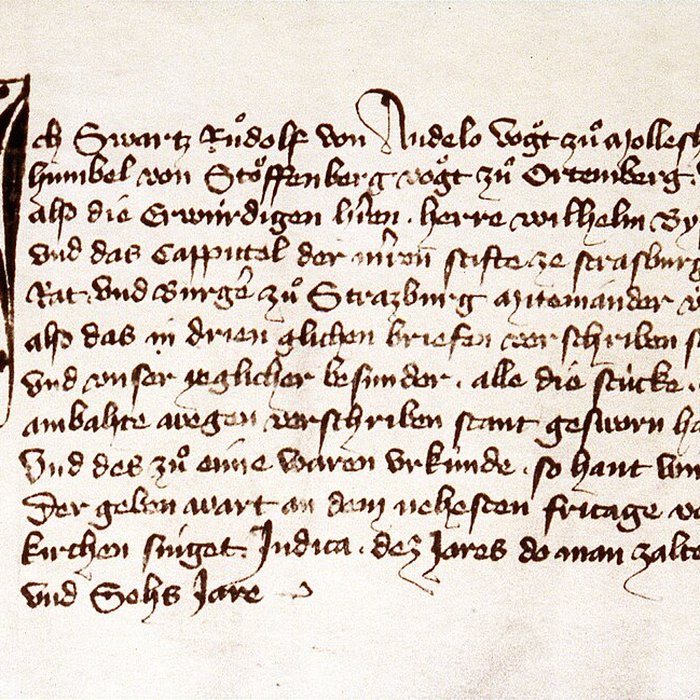 Ich Swartz Růdolf von Andelo vogt zů Mollesh
humbel von Stöffenberg vögt zů Ortemberg
also die Erwúrdigen herre wilhelm By
vnd das Cappittel der stifte ze strasburg
Rat vnd Burger zů Strazburg Miteinander
also das in drien glichen briefen verschriben s
vnd vnser yeglicher besunder . alle die stúcke
ambahte wegen verschriben stant gesworn ha
Vnd des zů eime waren vrkúnde . so hant
Der geben wart an dem nehesten fritage vo
kirchen singet Judica . dez Jares do man zalte
vnd Sehs Jare